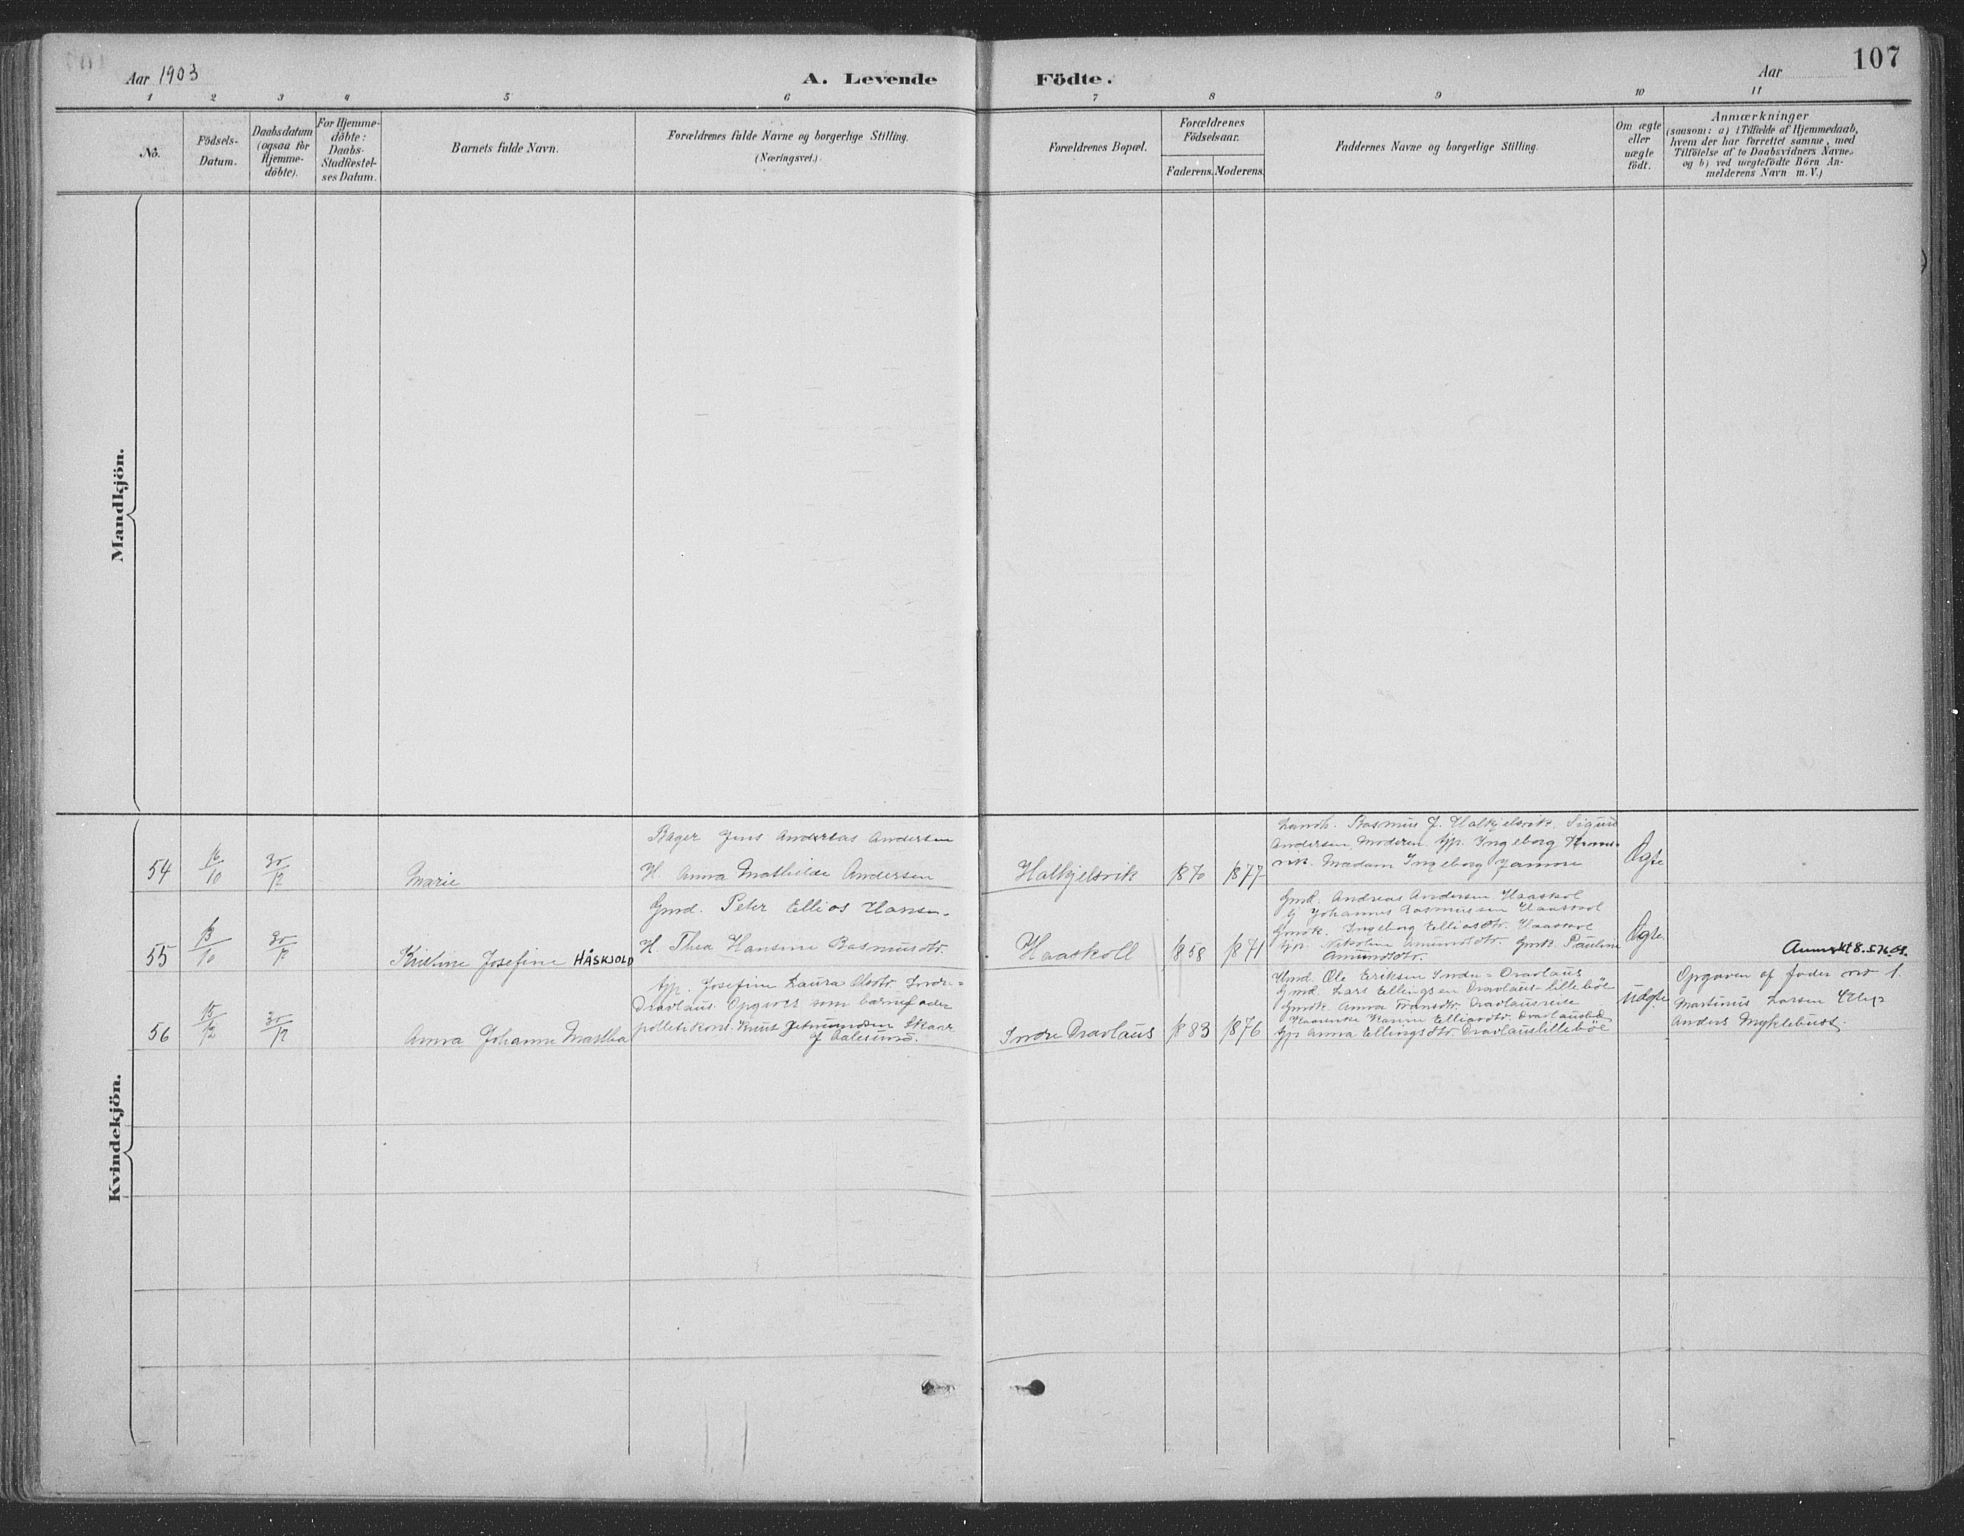 Aar 1903
A. Levende Födte.
Aar
107
1 2 3 4 5 6 7 8 9 10 11
No.
Födsels-
Datum.
Daabsdatum
(ogsaa for
Hjemme-
döbte).
For Hjemme-
döbte:
Daabs-
Stadfæstel-
ses Datum.
Barnets fulde Navn.
Forældrenes fulde Navne og borgerlige Stilling.
(Næringsvei.)
Forældrenes Bopæl.
Forældrenes
Födselsaar.
Faderens. Moderens.
Faddernes Navne og borgerlige Stilling.
Om ægte
eller
uægte
födt.
Anmærkninger
(saasom: a) i Tilfælde af Hjemmedaab,
hvem der har forrettet samme, med
Tilföielse af to Daabsvidners Navne,
og b) ved uægtefödte Börn An-
melderens Navn m. V.)
Mandkjön.
Kvindekjön.
54
16/10
30/12
Marie
Bager Jens Andreas Andersen
H. Anna Mathilde Andersen
Halkjelsvik
1870
1877
Landh. Rasmus J. Halkjelsvik, Sigurd
Andersen Moderen, Gp. Ingeborg
Madam Ingeborg
Ægte
55
13/10
30/12
Kristine Josefine HÅSKJOLD
Gmd. Peter Ellias Hansen
H. Thea Hansine Rasmusdtr.
Haaskoll
1858
1871
Gmd. Andreas Andersen Haaskol
Johannes Rasmussen Haaskol
Gmdk. Ingeborg Elliasdtr. Haaskol
Gp. Nikoline Amundsdtr. Gmdk. Pauline
Amundsdtr.
Ægte
56
15/12
30/12
Anna Johanne Mastba
Gp. Josefine Laura Olsdtr. Indre-
Dravlaus. Opgivet som barnefader
politikon. Knut Skaar
f Aalesund.
Indre Dravlaus
1883
1876
Gmd. Ole Eriksen Indre-Dravlaus
Gmd. Lars Ellingsen Dravlauslillebøe
Gmdk. Anna Fransdtr. Dravlausreite
Karine Elliasdtr. Dravlausbø
Gp Anna Ellingsdtr. Dravlauslillebøe
Uægte
Opgaven af fader no 1.
Martinus Larsen
Anders Myklebust.